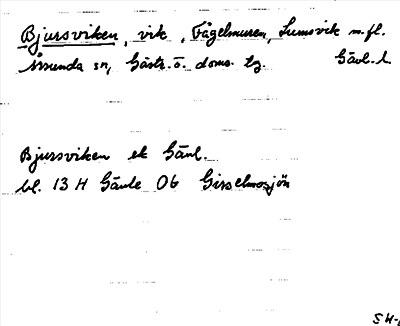 Bjursviken, vik, Fågelmuren, Lumsvik m.fl.
Årsunda sn, Gästr. ö. doms. tg. Gävl. l.
Bjursviken ek Gävl.
bl. 13 H Gävle 06 Gisselmosjön
SH-